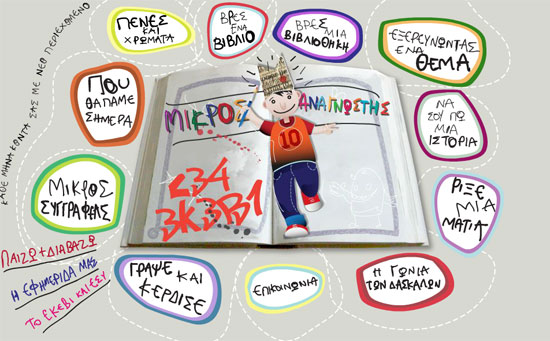 ΠΕΝΕΣ
ΚΑΙ
ΧΡΩΜΑΤΑ
ΒΡΕΣ
ΕΝΑ
ΒΙΒΛΙΟ
ΒΡΕΣ
ΜΙΑ
ΒΙΒΛΙΟΘΗΚΗ
ΕΞΕΡΕΥΝΩΝΤΑΣ
ΕΝΑ
ΘΕΜΑ
ΠΟΥ
ΘΑ ΠΑΜΕ
ΣΗΜΕΡΑ
ΜΙΚΡΟΣ ΑΝΑΓΝΩΣΤΗΣ
10
ΝΑ
ΣΟΥ ΠΩ
ΜΙΑ
ΙΣΤΟΡΙΑ
ΚΑΘΕ ΜΗΝΑ ΚΟΝΤΑ ΣΑΣ ΜΕ ΝΕΟ ΠΕΡΙΕΧΟΜΕΝΟ
ΜΙΚΡΟΣ
ΣΥΓΓΡΑΦΕΑΣ
234
3Κ3Β1
ΡΙΞΕ
ΜΙΑ
ΜΑΤΙΑ
ΠΑΙΖΩ+ΔΙΑΒΑΖΩ
Η ΕΦΗΜΕΡΙΔΑ ΜΑΣ
ΤΟ ΕΚΕΒΙ ΚΑΙ ΕΣΥ
ΓΡΑΨΕ ΚΑΙ
ΚΕΡΔΙΣΕ
ΕΠΙΚΟΙΝΩΝΙΑ
Η ΓΩΝΙΑ
ΤΩΝ ΔΑΣΚΑΛΩΝ